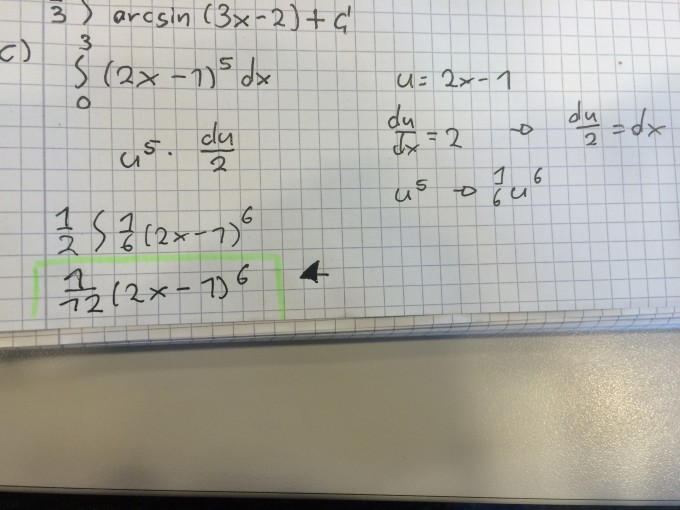 3) arcsin (3x-2) + C
c) 3
∫ (2x - 1)^5 dx u = 2x - 1
0
u^5 · du/2 du/dx = 2 → du/2 = dx
u^5 → 1/6 u^6
1/2 ∫ 1/6 (2x - 1)^6
1/12 (2x - 1)^6